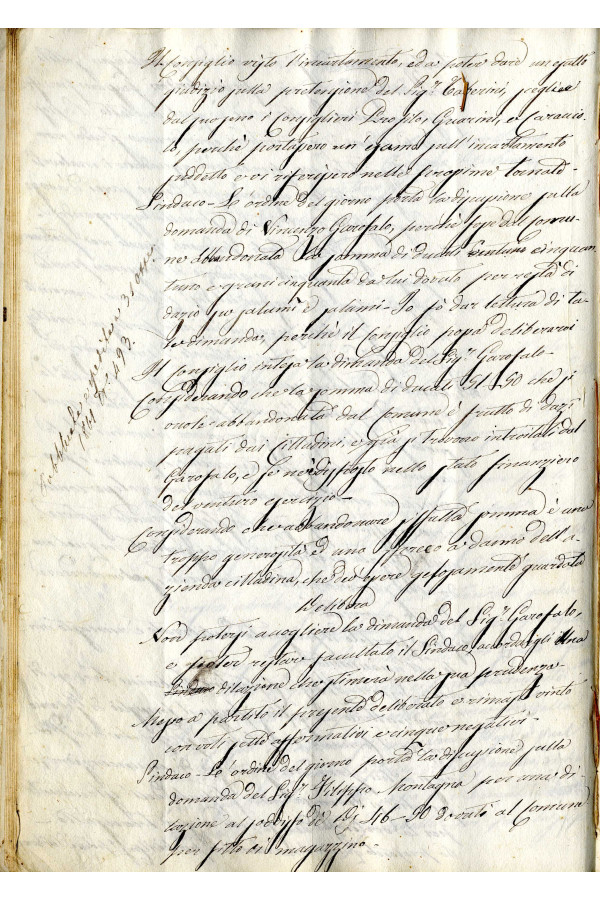 Il Consiglio visto l'incartamento, ed a poter dare un esatto
giudizio sulla pretensione del Sig.r Taberini, sceglie
dal proprio i Consiglieri Guarini, e
perchè portassero un esame sull'incartamento
suddetto e vi riferissero nelle prossime tornate-
Sindaco- L'ordine del giorno porta la discussione sulla
domanda di Vincenzo Garofalo, perchè fosse dal Comu-
ne abbandonata la somma di ducati cinquan
tuno e grani cinquanta da lui dovuta per resta di
dazio su salumi e - Io fò dar lettura di ta-
le dimanda, perchè il Consiglio possa deliberarvi
Il Consiglio intesa la dimanda del Sig.r Garofalo-
Considerando che la somma di ducati 51-50 che si
vuole abbandonata dal Comune è frutto di dazi
pagati dai Cittadini, e già si trovano introitati dal
Garofalo, e se n'è nello stato finanziero
del venturo esercizio-
Considerando che abbandonare siffatta somma è una
troppo generosità ed uno a danno dell'a-
zienda cittadina, che dev'essere gelosamente guardata
Delibera
Non potersi accogliere la dimanda del Sig.r Garofalo,
e restare facultato il Sindaco accordargli una
dilazione che stimerà nella sua prudenza-
Messo a partito il presente deliberato e rimasto vinto
con voti sette affermativi e cinque negativi-
Sindaco- L'ordine del giorno porta la discussione sulla
domanda del Sig.r Filippo Montagna per una di-
lazione al di D.i 46-90 dovuti al Comune
per fitto di magazzino-
Pubblicata e spedita
1861 N.o 493.